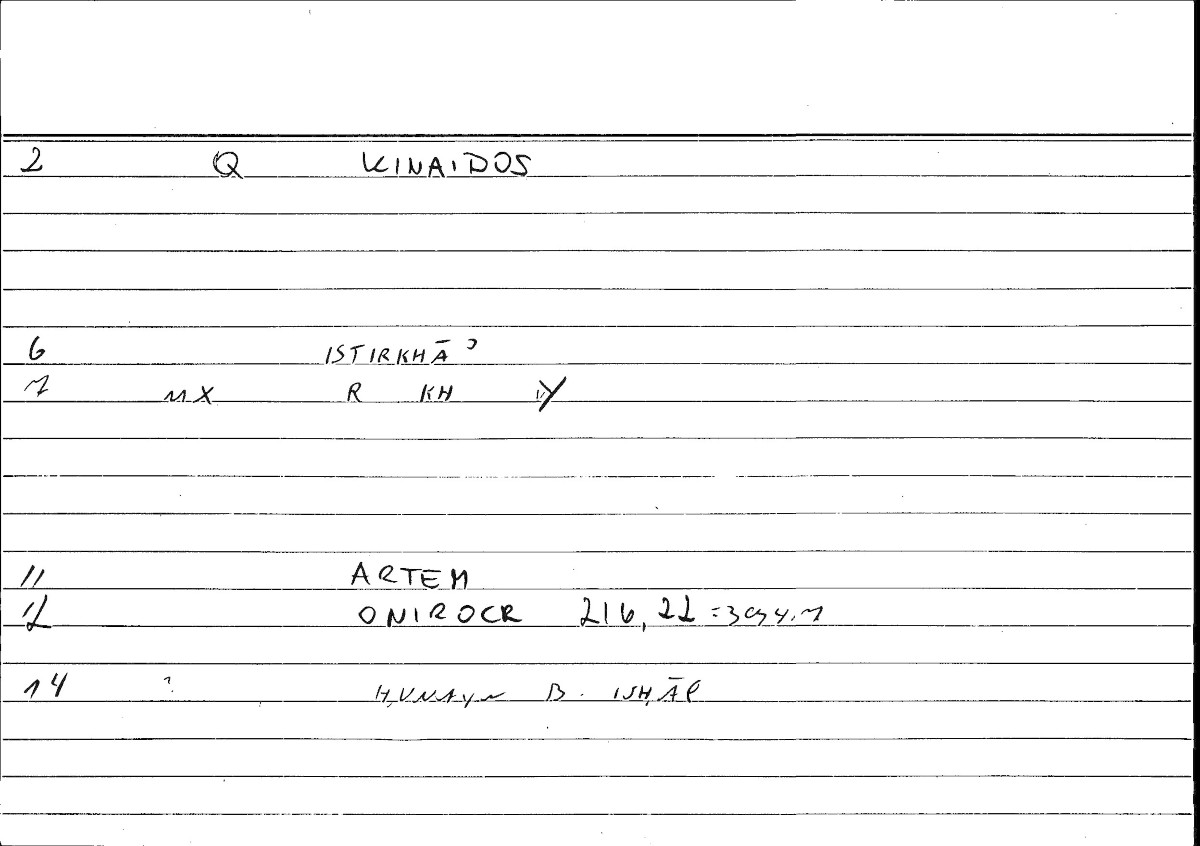 2 Q KINAIDOS
6 ISTIRKHĀʾ
7 MX R KH Y
11 ARTEM
12 ONIROCR 216,22 = 394,7
14 ? ḤUNAYN B. ISḤĀQ